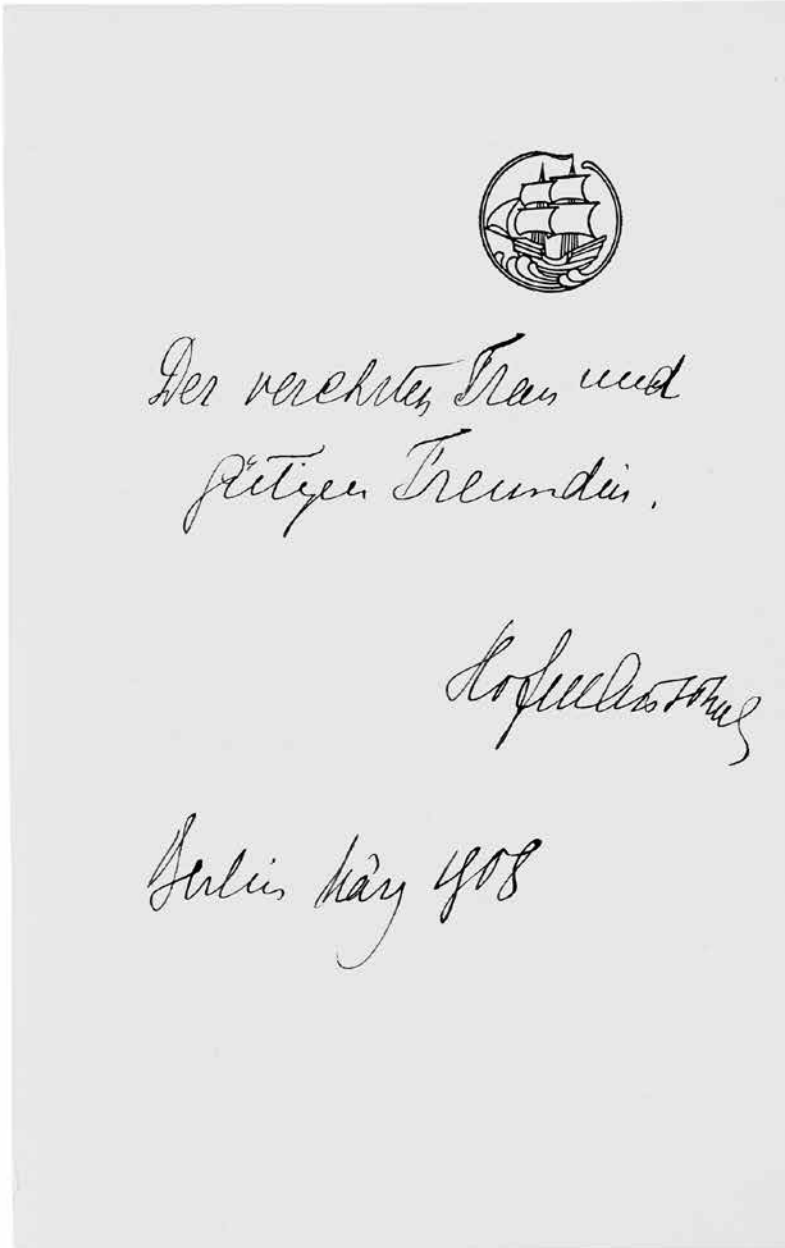 Der verehrten Frau und
gütigen Freundin.
Hofmannsthal
Berlin März 1908